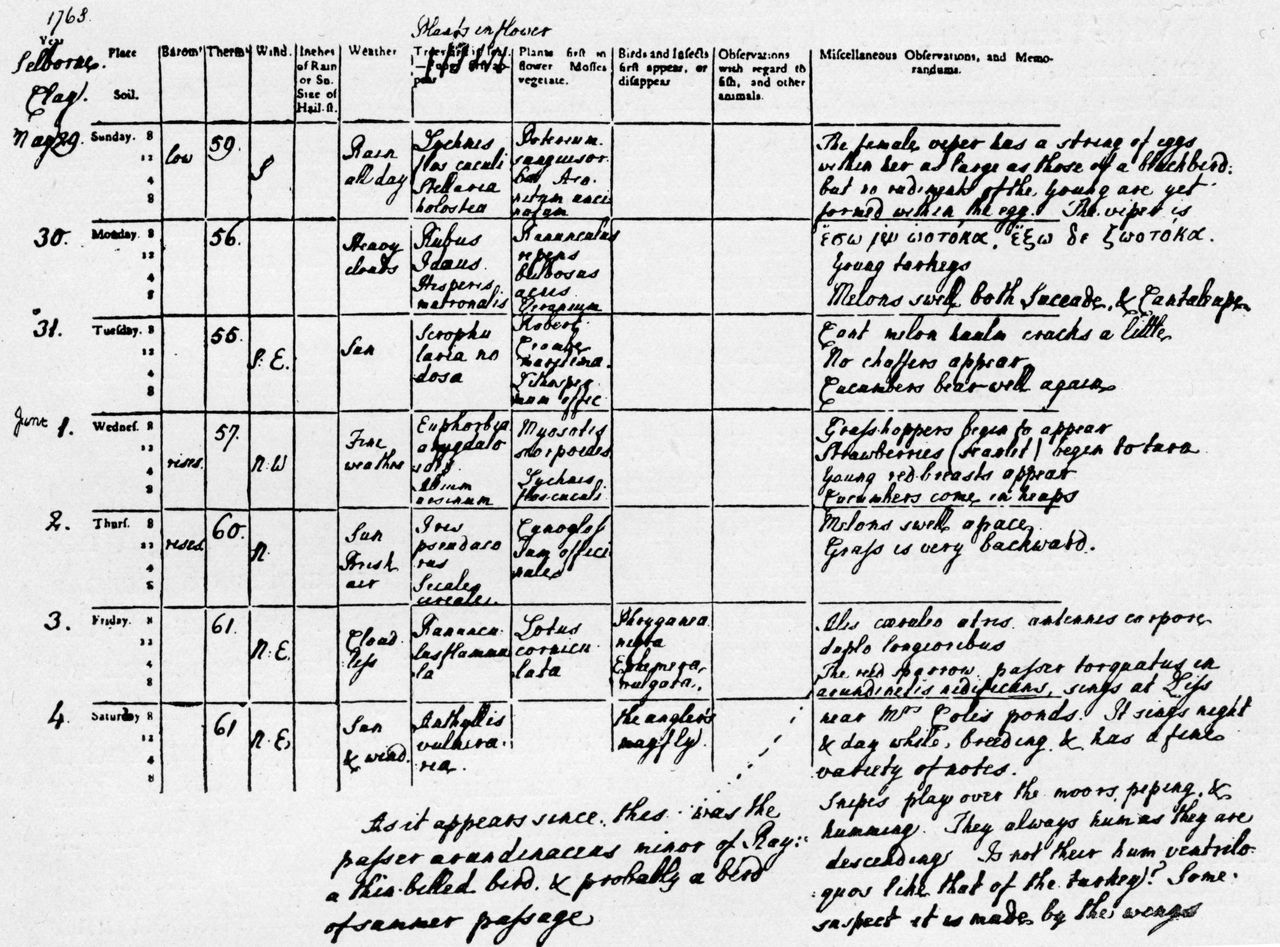 1768.
Year
Selborne. Place
Clay. Soil.
Barom' Therm' Wind. Inches of Rain or Sn. Size of Hail-st. Weather
Plants in flower
Plants first in flower Mosses vegetate.
Birds and Insects first appear, or disappear
Observations with regard to fish, and other animals.
Miscellaneous Observations, and Memorandums.
May 29. Sunday. 8 12 4 8
low
59.
S
Rain
all day
Lychnis
flos cuculi
Stellaria
holostea
Poterium
sanguisor
ba
The female viper has a string of eggs
within her as large as those of a blackbird:
but no rudiments of the young are yet
formed within the egg. The viper is
30. Monday. 8 12 4 8
56.
Heavy
clouds
Rubus
Idaeus.
Hesperis
matronalis
Ranunculus
repens
bulbosus
acris.
Geranium
ἔσω μὲν ὠοτόκα, ἔξω δε ζωοτόκα.
Young turkeys
Melons swell both Succade, & Cantaleupe
31. Tuesday. 8 12 4 8
55.
S. E.
Sun
Scrophu
laria no
dosa
Robert.
Crambe
maritima.
Lithosper
mum offic.
Cant melon haulm cracks a little
No chaffers appear
Cucumbers bear well again
June 1. Wednes. 8 12 4 8
rises.
57.
N. W
Fine
weather
Euphorbia
amygdalo
ides
Allium
ursinum
Myosotis
scorpoides
Lychnis
flos cuculi
Grasshoppers begin to appear
Strawberries (scarlet) begin to turn
Young red-breasts appear
Cucumbers come in heaps
2. Thurs. 8 12 4 8
rises.
60.
N.
Sun
Fresh
air
Iris
pseudaco
rus
Secale
cereale.
Cynoglos
sum offici
nale
Melons swell apace
Grass is very backward.
3. Friday. 8 12 4 8
61.
N. E.
Cloud
less
Ranuncu
lus flammu
la
Lotus
cornicu
lata
Phryganea
nigra
Ephemera
vulgata.
Alis cæruleo atris antennis corpore
duplo longioribus
The reed sparrow, passer torquatus in
arundinetis nidificans, sings at Liss
4. Saturday 8 12 4 8
61
N. E.
Sun
& wind.
Anthyllis
vulnera
ria.
the angler's
mayfly.
near Mrs Coles ponds. It sings night
& day while breeding & has a fine
variety of notes.
Snipes play over the moors, piping, &
humming. They always hum as they are
descending. Is not their hum ventrilo
quos like that of the turkey? Some
suspect it is made by the wings
As it appears since this was the
passer arundinaceus minor of Ray:
a thin-billed bird, & probably a bird
of summer passage